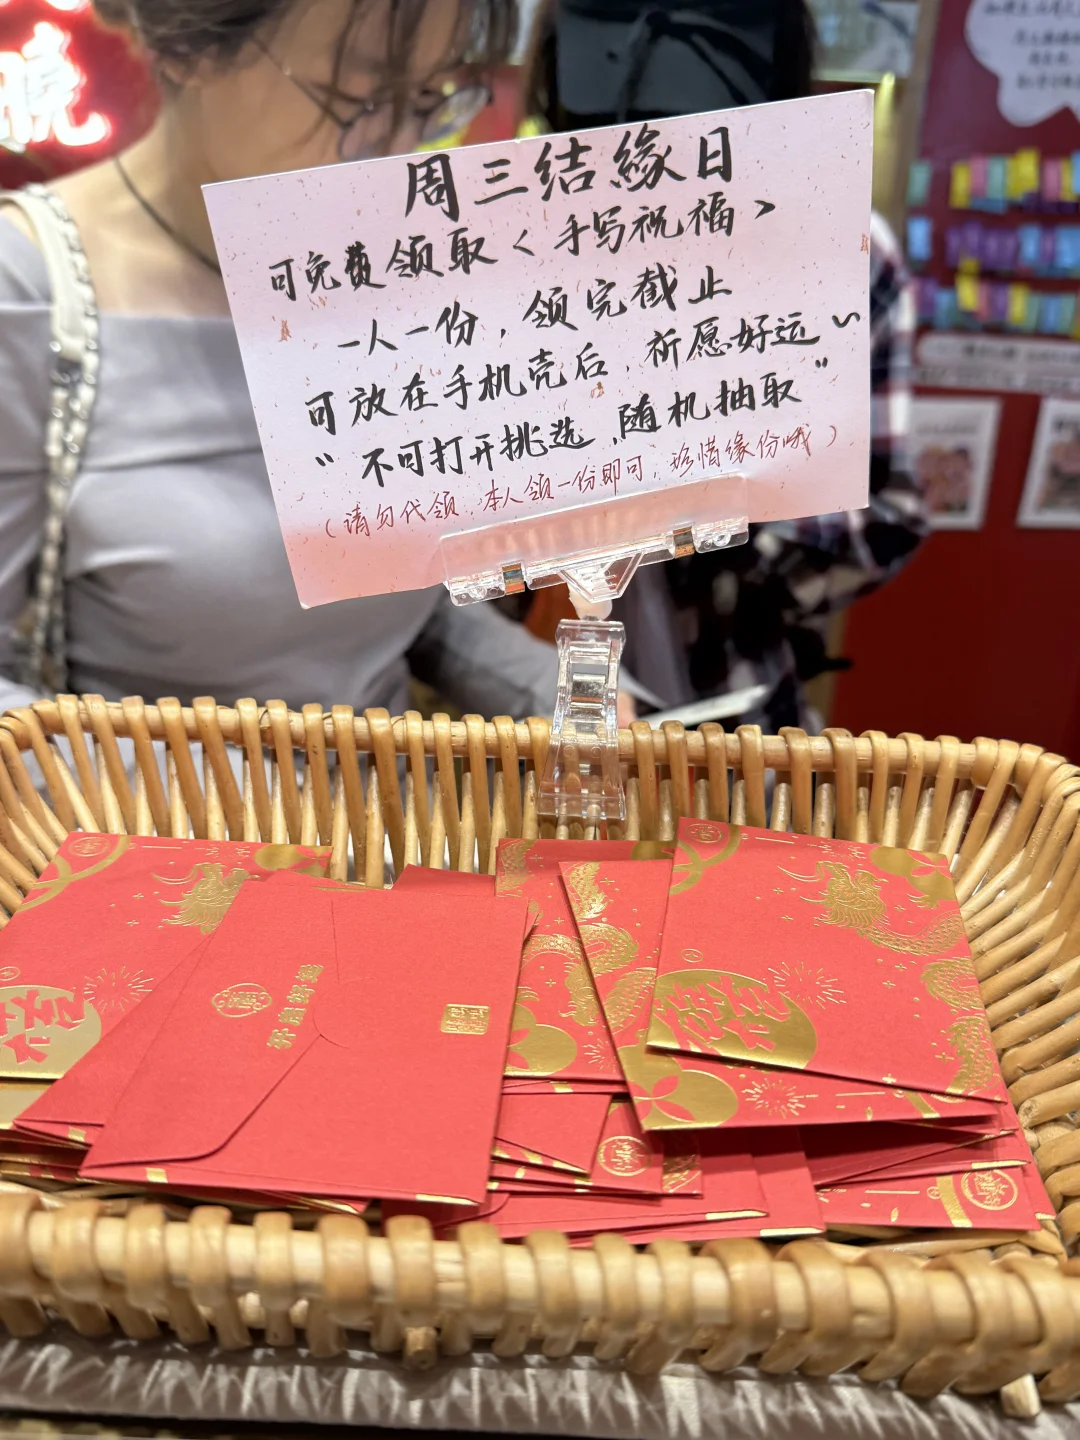 晓
周三结緣日
可免费领取<手写祝福>
一人一份，领完截止
可放在手机壳后，祈愿好运~
"不可打开挑选，随机抽取"
（请勿代领，本人领一份即可，珍惜缘份哦）
开启好运